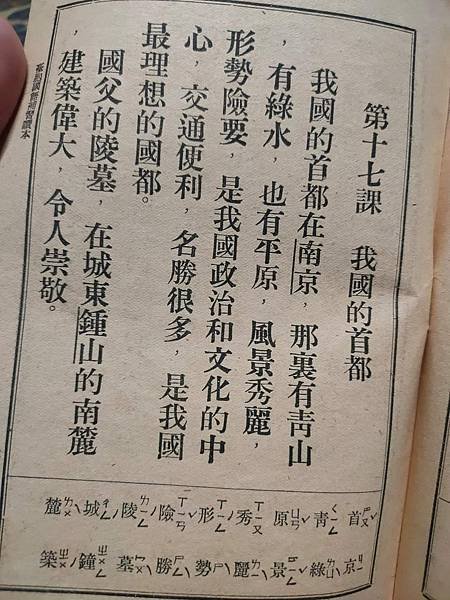 第十七課　我國的首都
我國的首都在南京，那裏有靑山
，有綠水，也有平原，風景秀麗，
形勢險要，是我國政治和文化的中
心，交通便利，名勝很多，是我國
最理想的國都。
國父的陵墓，在城東鍾山的南麓
，建築偉大，令人崇敬。
首ㄕㄡˇ 京ㄐㄧㄥ
靑ㄑㄧㄥ 綠ㄌㄩˋ
原ㄩㄢˊ 景ㄐㄧㄥˇ
秀ㄒㄧㄡˋ 麗ㄌㄧˋ
形ㄒㄧㄥˊ 勢ㄕˋ
險ㄒㄧㄢˇ 勝ㄕㄥˋ
陵ㄌㄧㄥˊ 墓ㄇㄨˋ
城ㄔㄥˊ 鐘ㄓㄨㄥ
麓ㄌㄨˋ 築ㄓㄨˊ
國語補習讀本